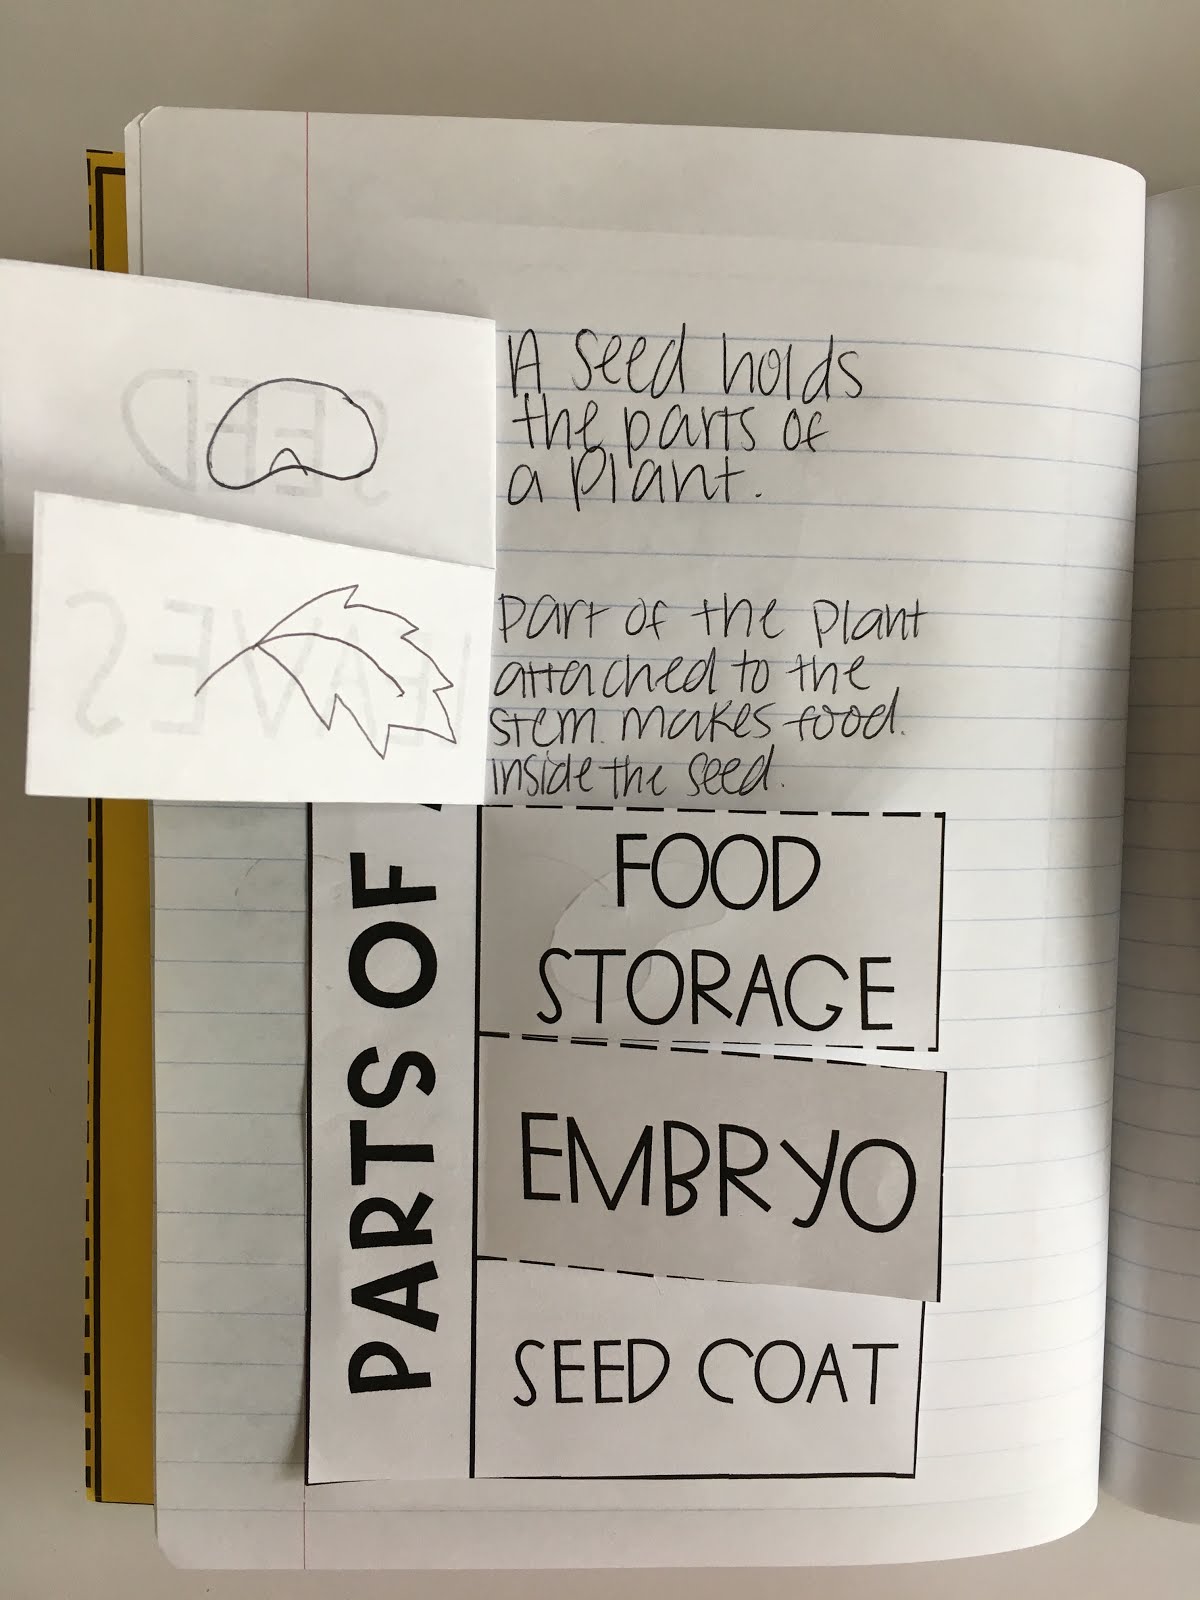 SEED
A seed holds
the parts of
a plant.
LEAVES
part of the plant
attached to the
stem. makes food.
inside the seed.
PARTS OF
FOOD
STORAGE
EMBRYO
SEED COAT